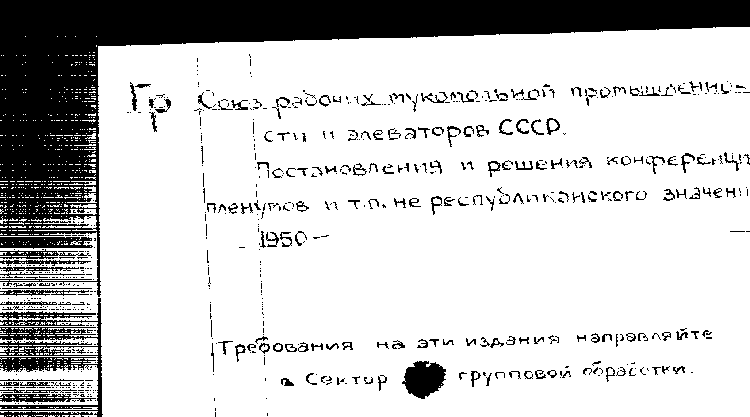 Гр Союз рабочих мукомольной промышленно-
сти и элеваторов СССР.
Постановления и решения конференци
пленумов и т.п. не республиканского значени
1950 —
Требования на эти издания направляйте
в Сектор групповой обработки.